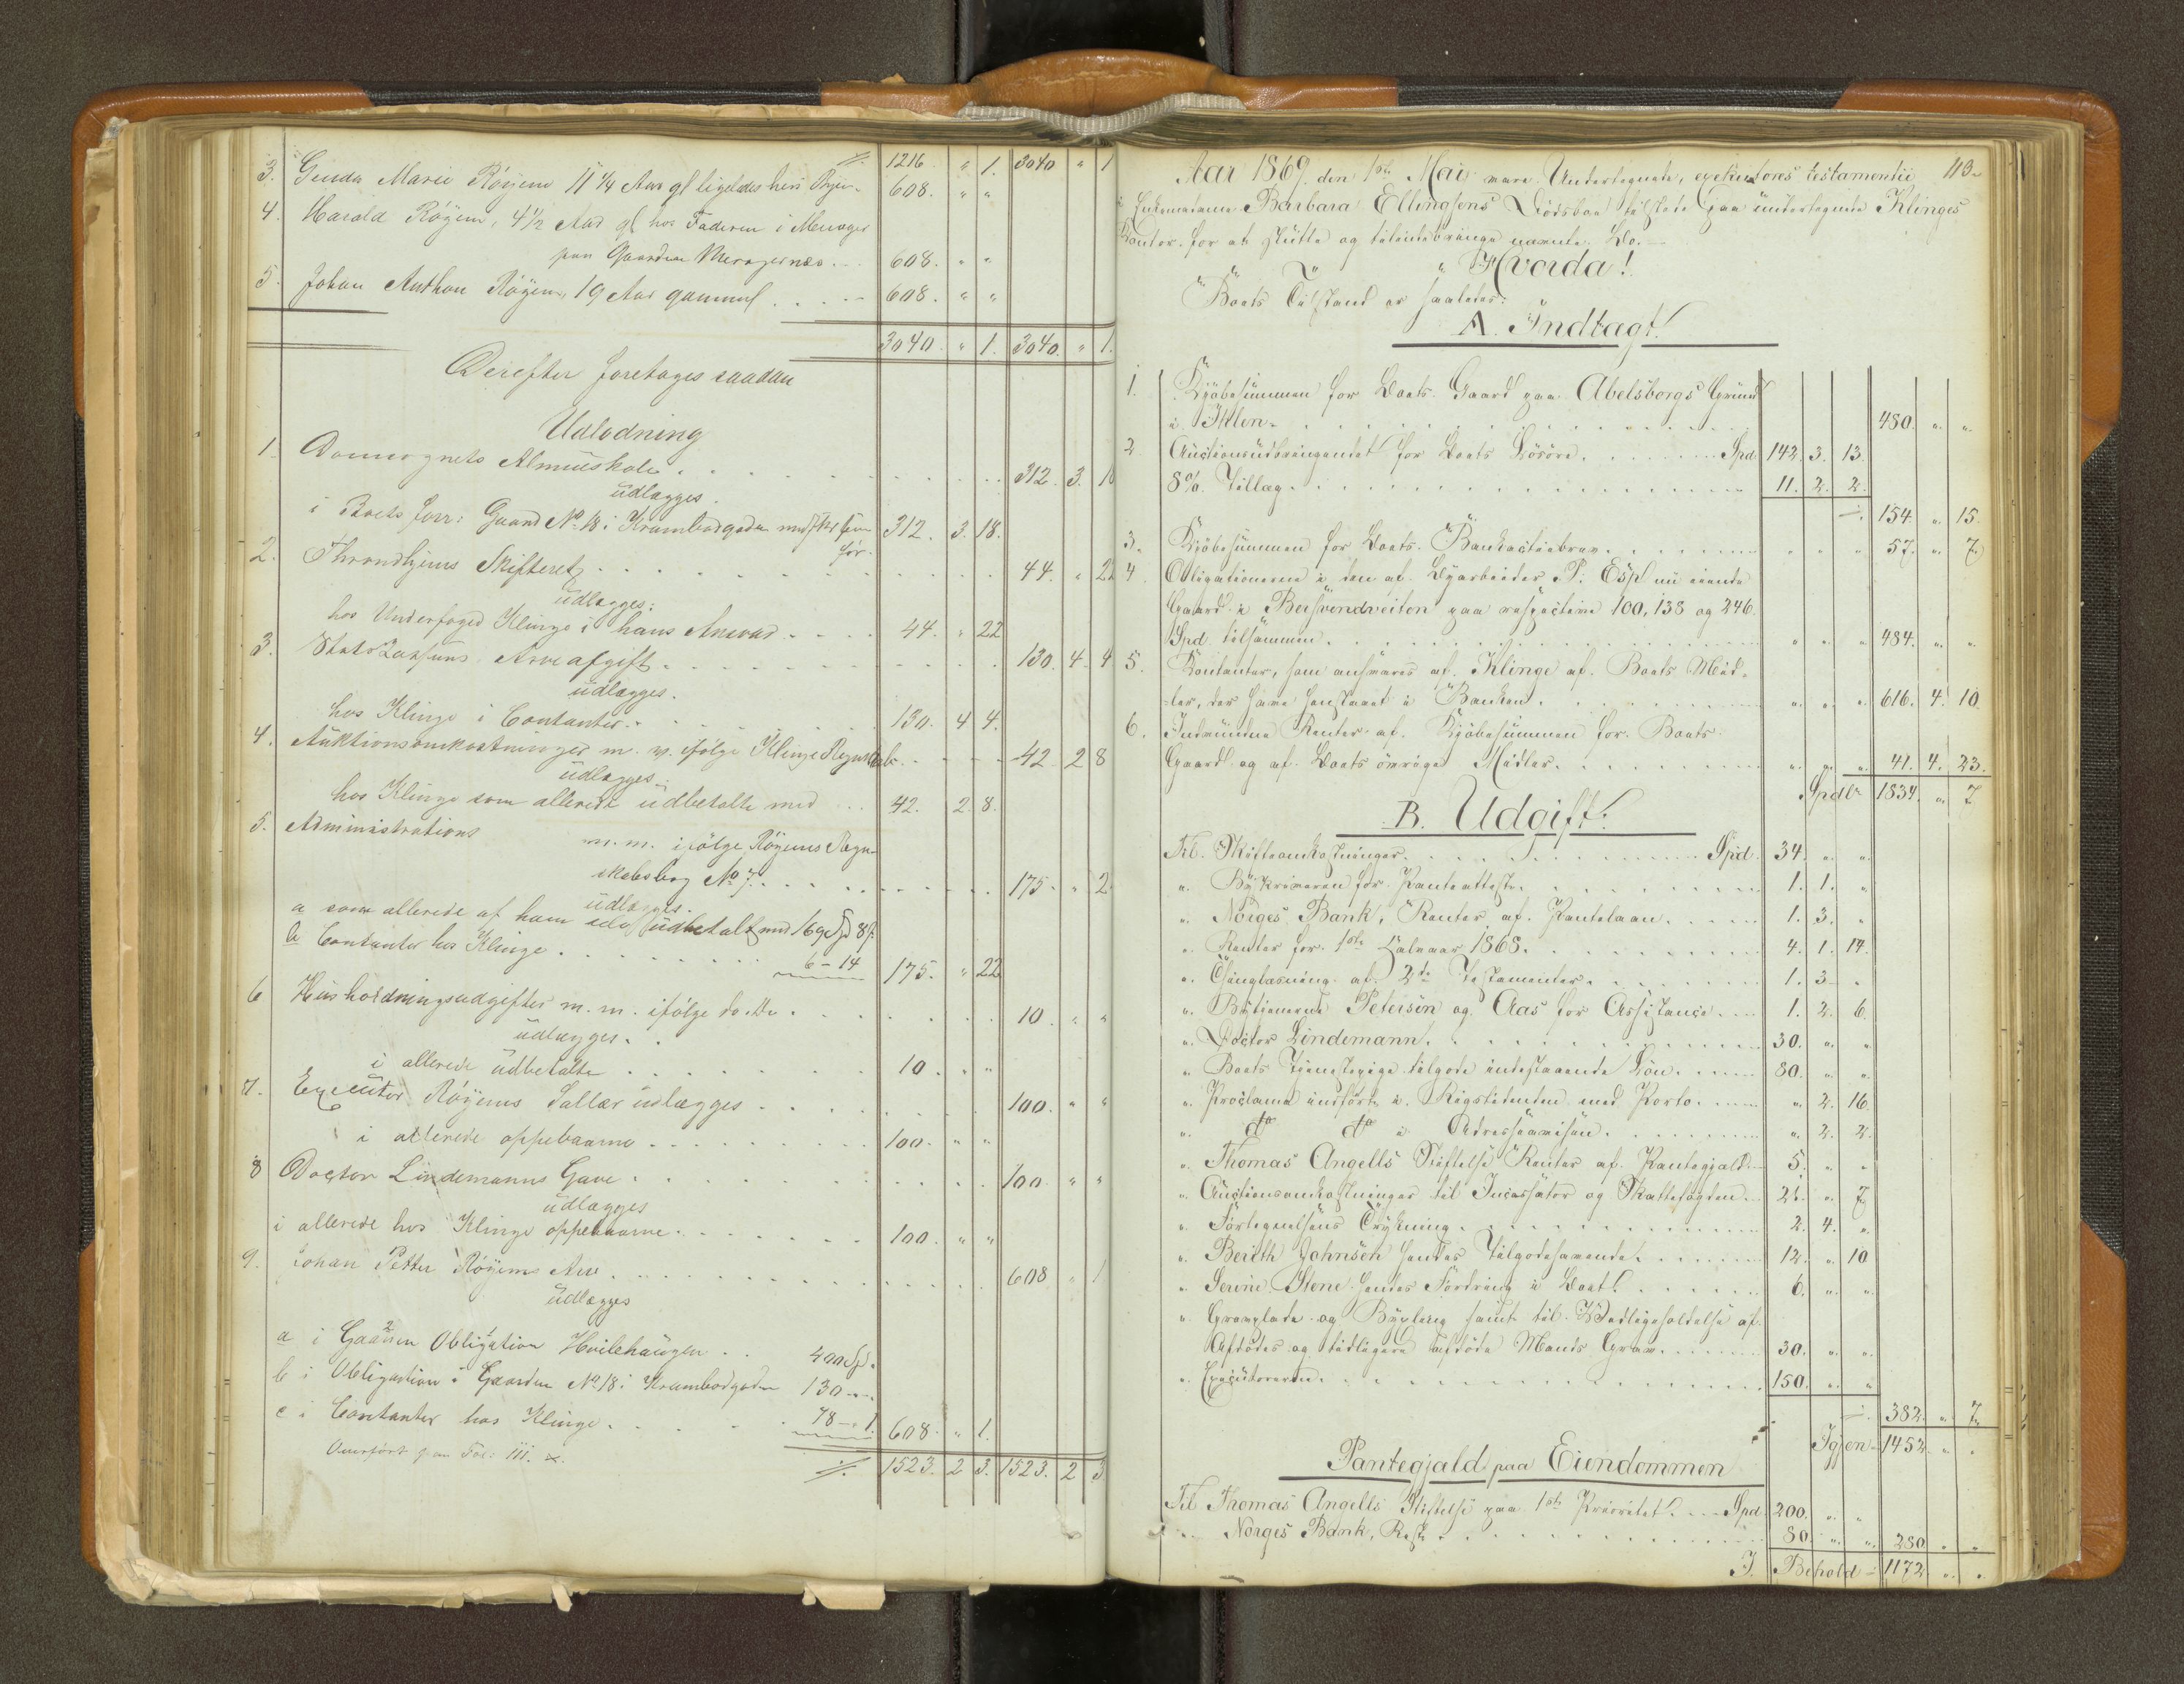 ⁒ 1216 " 1. 3040 " 1
3. Marie Röyem 11 1/4 Aar gl ligeledes 608. " "
4. Harald Röyem, 4 1/2 Aar gl hos Faderen i
paa Gaarden 608. " "
5. Johan Anthon Röyem, 19 Aar gammel 608. " "
3040. " 1. 3040. " 1.
Derefter foretages saadan
Udlodning
1. Almueskole 312. 3. 18
udlægges.
i Boets Gaard No 18 i Krambodgaden 312. 3. 18.
2. Throndhjems Skifteret 44. " 22
udlægges:
hos Underfoged Klinge i hans Ansvar 44. " 22
3. Arveafgift 130. 4. 4
udlægges.
hos Klinge i Contanter 130. 4 4.
4. Auktionsomkostninger m. v. ifölge Klinges Regnskab 42 2 8
udlægges.
hos Klinge som allerede udbetalte med 42. 2. 8.
5. Administrations m. m. ifölge Röyems Regn-
skabsbog No 7 175. " 2
udlægges.
a som allerede af ham udbetalt med 169 Spd 8 s.
b Contanter hos Klinge 6 - 14 175. " 22
6 Husholdningsudgifter m. m. ifölge do. 10. " "
udlægges.
i allerede udbetalte 10. " "
7. Executor Röyems Sallær udlægges 100. " "
i allerede oppebaarne 100. " "
8 Doctor Lindemanns Gave 100. " "
udlægges
i allerede hos Klinge oppebaarne 100. " "
9. Johan Petter Röyems Arv 608 " 1
udlægges
a i Gaarden Obligation Hvilehaugen 400 Spd.
b i Obligation i Gaarden No 18 i Krambodgaden 130 - -
c i Contanter hos Klinge 78 - 1. 608. " 1.
Overfört paa Fol: 111.
⁒ 1523. 2 3. 1523. 2 3
113.
Aar 1869 den 1ste Mai vare Undertegnede, exekutores testamentii
i Enkemadame Barbara Ellingsens Dödsbo tilstede paa undertegnede Klinges
Kontor for at slutte og tilendebringe nævnte Bo.
Hvorda!
Boets Tilstand er saaledes:
A. Indtægt!
1. Kjöbesummen for Boets Gaard paa Abelsborgs Grund
i Ihlen 480. " "
2 Auctionsudbringendet for Boets Lösöre Spd. 142. 3. 13.
8% Tillæg 11. 2. 2.
÷ 154. " 15.
3. Kjöbesummen for Boets Bankactiebrev " " " 57. " 7
4. Obligationerne i den af Byarbeider P. Espl nu eiende
Gaard i Bersvendveiten paa respective 100, 138 og 246
Spd. tilsammen " " " 484. " "
5. Kontanter, som ansvares af Klinge af Boets Mid-
ler, der have henstaaet i Banken " " " 616. 4. 10.
6. Indvundne Renter af Kjöbesummen for Boets
Gaard og af Boets övrige Midler " " " 41. 4. 23.
Spdlr 1834. " 7
B. Udgift:
Til Skifteomkostninger Spd. 34. " "
" Byskriveren for Panteattest 1. 1. "
" Norges Bank, Renter af Pantelaan 1. 3. "
" Renter for 1ste Halvaar 1868 4. 1. 14.
" Thinglæsning af 2de Testamenter 1. 3. "
" Bytjenerne Petersen og Aas for Assistance 1. 2. 6.
" Doctor Lindemann 30. " "
" Boets Tjenestepige tilgode indestaaende Lön 80. " "
" Proclama indfört i Rigstidenden med Porto " 2. 16.
" do do i Adresseavisen " 2. 2.
" Thomas Angells Stiftelse Renter af Pantegjæld 5. " "
" Auctionsomkostninger til Incassator og Skattefogden 21. " 7
" Fortegnelsens Trykning 2. 4. "
" Berith Johnsen hendes Tilgodehavende 12. " 10
" Serine Stene hendes Fordring i Boet 6. " "
" Gravplade og samt til Vedligeholdelse af
Afdödes og tidligere afdöde Mands Grav 30. " "
" Executorerne 150. " "
÷ 382. " 7
Igjen 1452 " "
Pantegjæld paa Eiendommen
Til Thomas Angells Stiftelse paa 1ste Prioritet Spd. 200. " "
" Norges Bank, Rest 80. " " 280 " "
I Behold 1172 " "